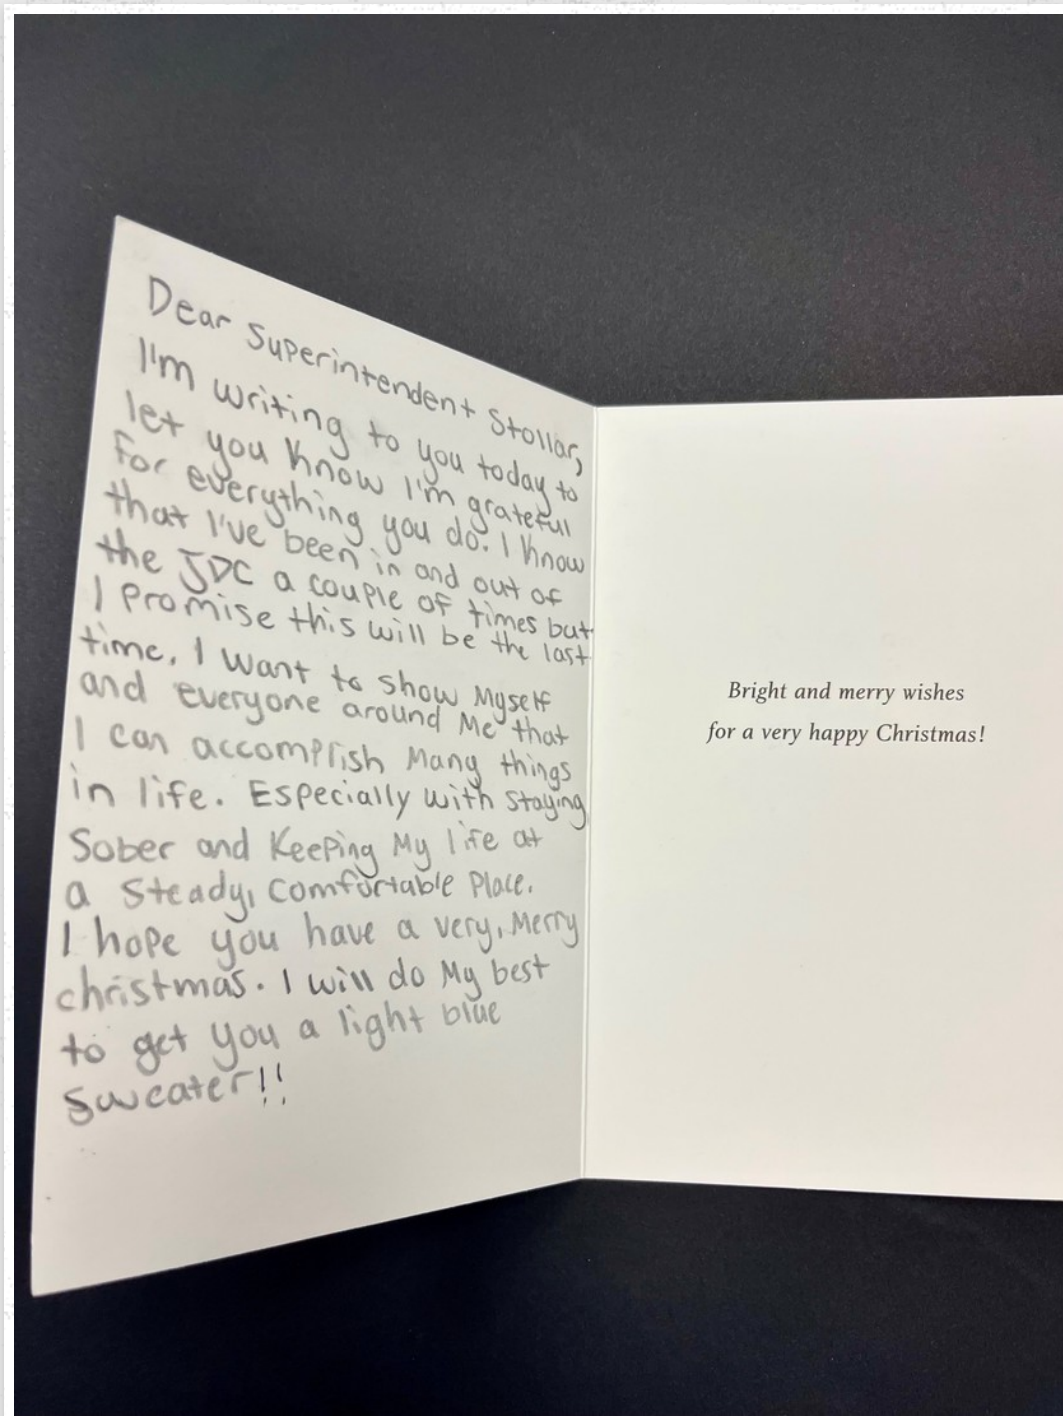 Dear Superintendent Stollar,
I'm writing to you today to
let you know I'm grateful
for everything you do. I know
that I've been in and out of
the JDC a couple of times but
I promise this will be the last
time. I want to show myself
and everyone around me that
I can accomplish many things
in life. Especially with staying
sober and keeping my life at
a steady, comfortable place.
I hope you have a very, merry
christmas. I will do my best
to get you a light blue
sweater!!
Bright and merry wishes
for a very happy Christmas!